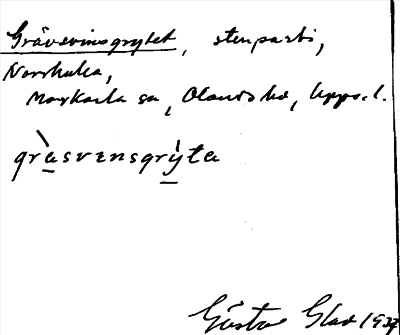 Grävsvinsgrytet, stenparti,
Norrkulla,
Markarla sn, Olands hd, Upps. l.
gràsvensgrỳta
Gösta Glad 1937